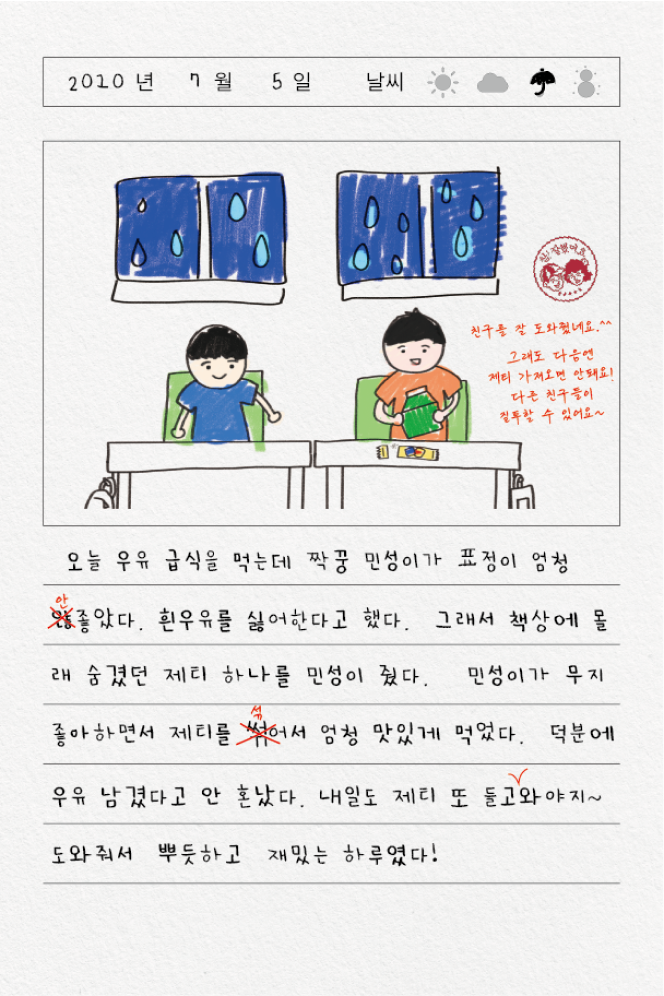 2010 년 7 월 5 일 날씨
참! 잘했어요
친구를 잘 도와줬네요.^^
그래도 다음엔
제티 가져오면 안돼요!
다른 친구들이
질투할 수 있어요~
오늘 우유 급식을 먹는데 짝꿍 민성이가 표정이 엄청
안
않좋았다. 흰우유를 싫어한다고 했다. 그래서 책상에 몰
래 숨겼던 제티 하나를 민성이 줬다. 민성이가 무지
섞
좋아하면서 제티를 썪어서 엄청 맛있게 먹었다. 덕분에
우유 남겼다고 안 혼났다. 내일도 제티 또 들고와야지~
도와줘서 뿌듯하고 재밌는 하루였다!